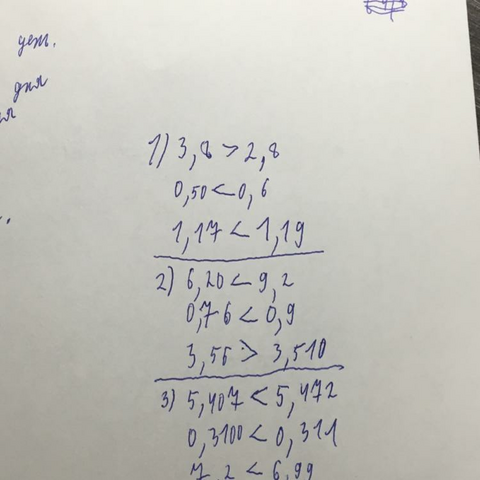 ует.
для
1) 3,8 > 2,8
0,50 < 0,6
1,17 < 1,19
2) 6,20 < 9,2
0,76 < 0,9
3,56 > 3,510
3) 5,407 < 5,472
0,3100 < 0,311
7,2 < 6,99